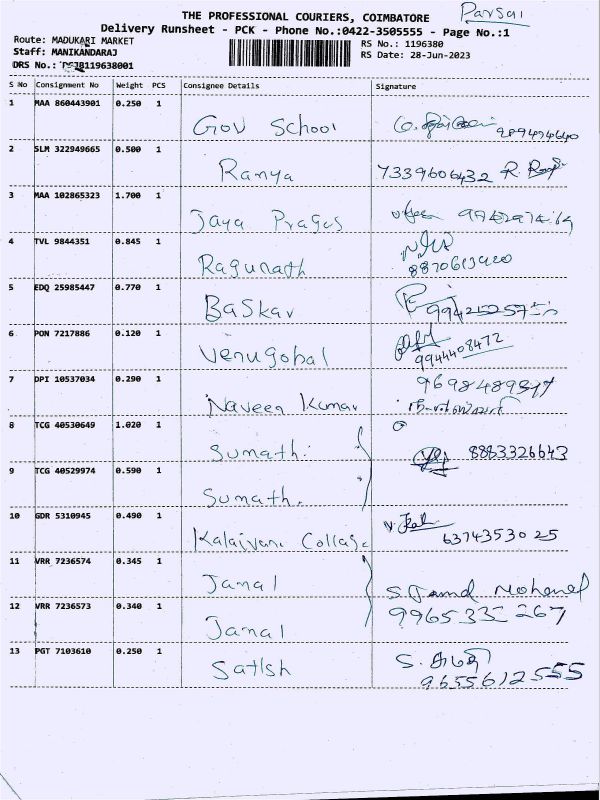 Parsal
THE PROFESSIONAL COURIERS, COIMBATORE
Delivery Runsheet - PCK - Phone No.:0422-3505555 - Page No.:1
Route: MADUKARI MARKET
RS No.: 1196380
Staff: MANIKANDARAJ
RS Date: 28-Jun-2023
DRS No.: 119638001
S No Consignment No Weight PCS Consignee Details Signature
1 MAA 860443901 0.250 1 Gov School
2 SLM 322949665 0.500 1 Ranya 7339606432 R.
3 MAA 102865323 1.700 1 Jaya Prages
4 TVL 9844351 0.845 1 Ragunath
5 EDQ 25985447 0.770 1 Baskar
6 PON 7217886 0.120 1 Venugobal
9944408472
7 DPI 10537034 0.290 1 Naveen Kumar
8 TCG 40530649 1.020 1 Sumathi 8883326643
9 TCG 40529974 0.590 1 Sumathi
10 GDR 5310945 0.490 1 Kalaivani College
6374353025
11 VRR 7236574 0.345 1 Jamal
S. Jamal Mohamed
12 VRR 7236573 0.340 1 Jamal 9965332267
13 PGT 7103610 0.250 1 Satish S.
9655612555